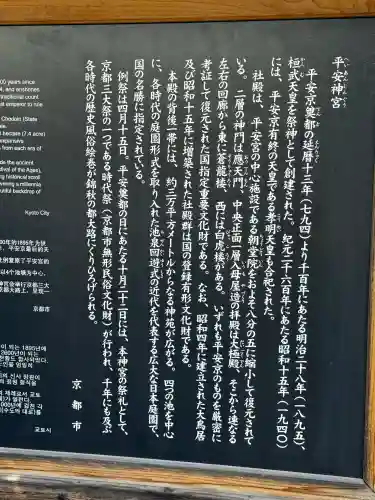 平安神宮
平安京建都の延暦十三年（七九四）より千百年にあたる明治二十八年（一八九五）、
桓武天皇を祭神として創建された。紀元二千六百年にあたる昭和十五年（一九四〇）
には、平安京有終の天皇である孝明天皇も合祀された。
社殿は、平安宮の中心施設である朝堂院をおよそ八分の五に縮小して復元されて
いる。二層の神門は應天門、中央正面一層入母屋造の拝殿は大極殿、そこから連なる
左右の回廊から東に蒼龍楼、西には白虎楼がある。いずれも平安京のものを厳密に
考証して復元された国指定重要文化財である。なお、昭和四年に建立された大鳥居
及び昭和十五年に増築された社殿群は国の登録有形文化財である。
本殿の背後一帯には、約三万平方メートルからなる神苑が広がる。四つの池を中心
に、各時代の庭園形式を取り入れた池泉回遊式の近代を代表する広大な日本庭園で、
国の名勝に指定されている。
例祭は四月十五日。平安奠都の日にあたる十月二十二日には、本神宮の祭礼として、
京都三大祭の一つである時代祭（京都市無形民俗文化財）が行われ、千年にも及ぶ
各時代の歴史風俗絵巻が錦秋の都大路にくりひろげられる。
京都市
00 years since
4, and enshrines
traditional count
emperor to rule
Chodoin (State
e.
hectare (7.4 acre)
expansive
from each era of
de the ancient
ival of the Ages),
ng historical scroll
vering a millennia
utiful backdrop of
Kyoto City
京都市
교토시